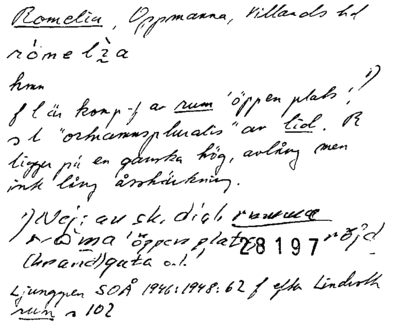 Romelia, Oppmanna, Villands hd
hmn
f l är komp-f av rum 'öppen plats',¹)
s l "ortnamnspluralis" av lid. R
ligger på en ganska hög, avlång men
inte lång
1) Nej: av sk. dial.
'öppen plats, röjd
28197
gata o.l.
Ljunggren SOÅ 1946:1948:62 f efter Lindroth
rum s 102